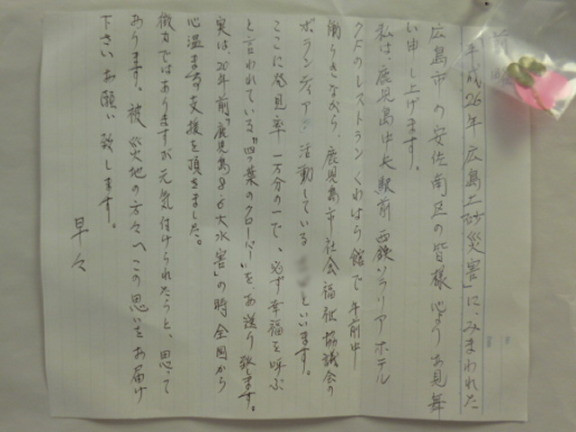 「平成26年 広島土砂災害」に、みまわれた
広島市の安佐南区の皆様 心よりお見舞
い申し上げます。
私は、鹿児島中央駅前 西鉄ソラリアホテル
2Fのレストラン くわはら館で午前中
働らきながら、鹿児島市社会福祉協議会の
ボランティア活動している といいます。
ここに発見率 一万分の一で、必ず幸福を呼ぶ
と言われている"四つ葉のクローバー"を、お送り致します。
実は、20年前"鹿児島8.6大水害"の時 全国から
心温まる支援を頂きました。
微力ではありますが元気付けられたらと、思って
あります。被災地の方々へこの思いをお届け
下さいお願い致します。
早々